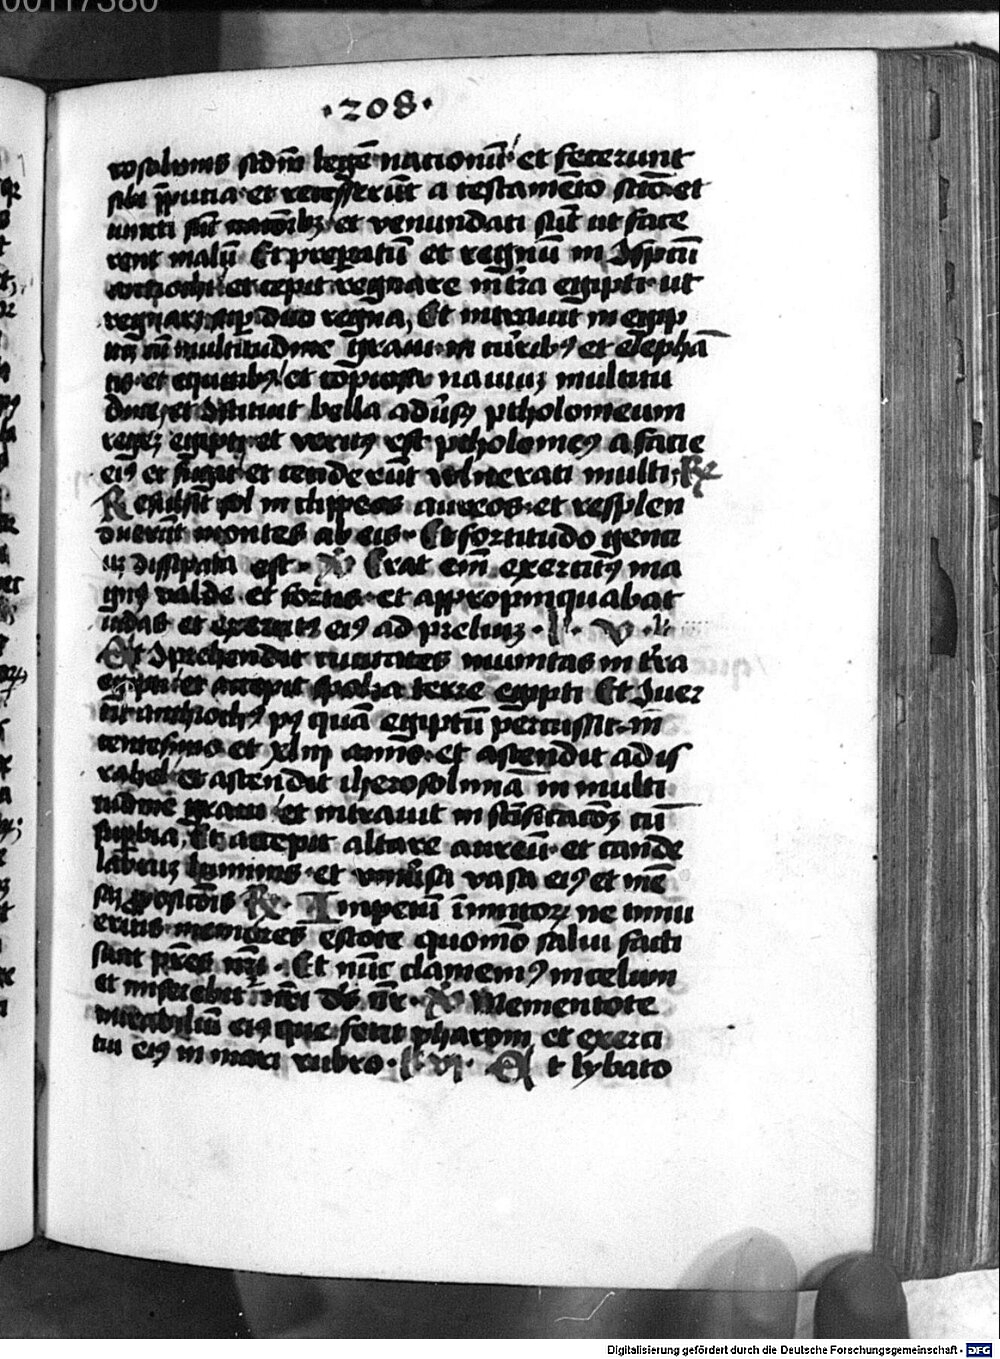 00117380
·208·
rosolimis scdm legē nationū et fecerunt
sibi p̄putia et recesserūt a testamēto scō et
iuncti sūt nationibꝫ et venundati sūt ut face
rent malū Et preparatū et regnū in 9spectū
antiochi et cepit regnare in t̄ra egipti ut
regnaret sup̄ duo regna, Et intrauit in egip
tū cū multitudine graui in curribꝰ et elephā
tis et equitibꝰ et copiosa nauiuꝫ multitu
dine et 9stituit bella adūsꝰ ptholomeum
regeꝫ egipti et veritꝰ est ptholomeꝰ a facie
eiꝰ et fugit et cenderūt vulnerati multi ℟
Refulsit sol in clippeos aureos et resplen
duerūt montes ab eis· Et fortitudo genti
uꝫ dissipata est· ℣ Erat em̄ exercitꝰ ma
gnꝰ valde et fortis· et appropinquabat
iudas et exercitꝰ eiꝰ ad preliuꝫ· l· v· l·
Et 9prehendit ciuitates munitas in t̄ra
egipti et accepit spolia terre egipti Et 9uer
tit anthiochꝰ pꝰ quā egiptū percussit in
centesimo et xliij anno· et ascendit ad is
rahel et ascendit iherosolimā in multi
tudine graui et intrauit in scīficacōꝫ cū
supbia, Et accepit altare aureū· et cande
labruꝫ luminis· et vniūsa vasa eiꝰ et mē
saꝫ pposicōis ℟· Impetū inimicoꝝ ne timu
eritis memores estote quomō salui facti
sunt pr̄es nr̄i · Et nūc clamemꝰ in celum
et miserebit᷑ nr̄i ds̄ nr̄· ℣ Mementote
mirabiliū eiꝰ que fecit pharoni et exerci
tui eiꝰ in mari rubro· l· vi· Et lybato
Digitalisierung gefördert durch die Deutsche Forschungsgemeinschaft - DFG